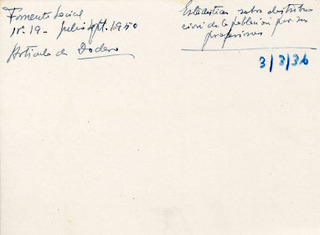 Fomento Social
nº 19 - julio sept. 1950
Artículo de Dodero
Estadísticas sobre distribu
ción de la población por sus
profesiones
3/3/36